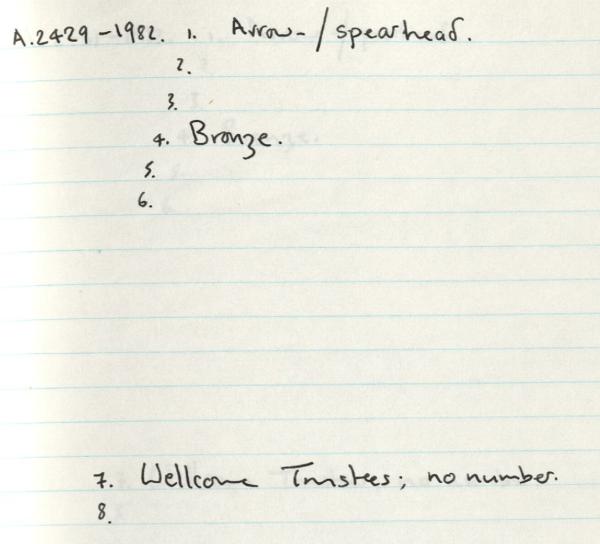 A.2429-1982. 1. Arrow-/spearhead.
2.
3.
4. Bronze.
5.
6.
7. Wellcome Trustees; no number.
8.